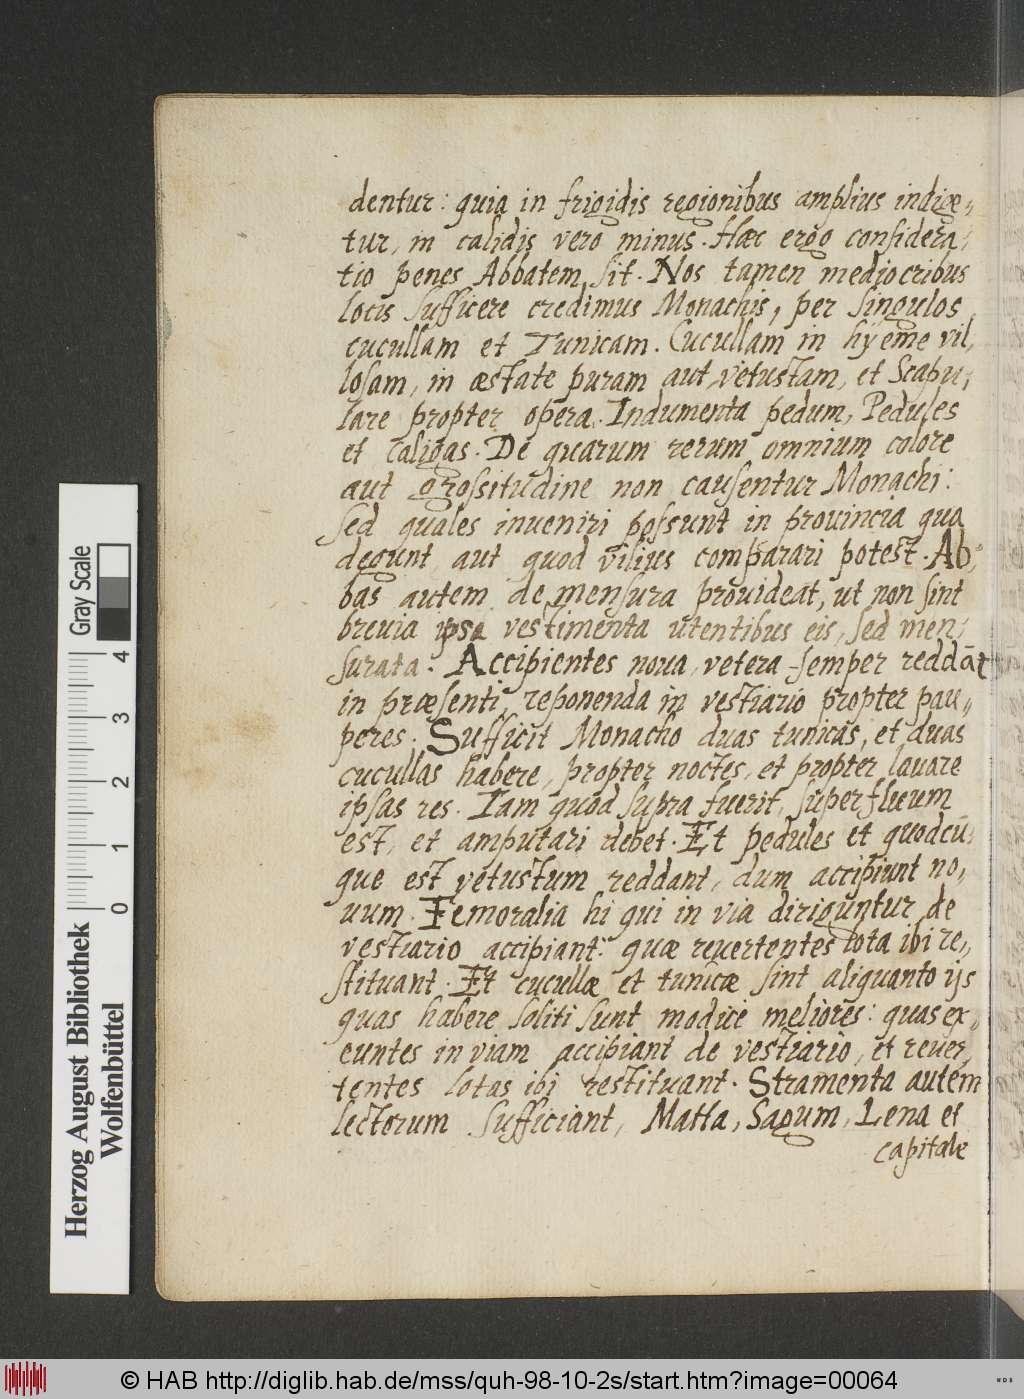 dentur: quia in frigidis regionibus amplius indigæ„
tur, in calidis vero minus. Hæc ergo considera„
tio penes Abbatem sit. Nos tamen mediocribus
locis sufficere credimus Monachis, per singulos
cucullam et Tunicam. Cucullam in hÿeme vil„
losam, in æstate puram aut vetustam, et Scapu„
lare propter opera. Indumenta pedum, Pedules
et caligas. De quarum rerum omnium colore
aut grossitudine non causentur Monachi:
sed quales inueniri possunt in prouincia qua
degunt, aut quod vilius comparari potest. Ab„
bas autem de mensura prouideat, ut non sint
breuia ipsa vestimenta utentibus eis, sed men„
surata. Accipientes noua, vetera semper reddāt
in præsenti, reponenda in vestiario propter pau„
peres. Sufficit Monacho duas tunicas, et duas
cucullas habere, propter noctes, et propter lauare
ipsas res. Iam quod supra fuerit, superfluum
est, et amputari debet. Et pedules et quodcū„
que est vetustum reddant, dum accipiunt no„
uum. Femoralia hi qui in via diriguntur de
vestiario accipiant: quæ reuertentes lota ibi re„
stituant. Et cucullæ et tunicæ sint aliquanto ijs
quas habere soliti sunt modice meliores: quas ex„
euntes in viam accipiant de vestiario, et reuer„
tentes lotas ibi restituant. Stramenta autem
lectorum sufficiant, Matta, Sagum, Lena et
capitale
Herzog August Bibliothek
Wolfenbüttel
0 1 2 3 4
Gray Scale
© HAB http://diglib.hab.de/mss/quh-98-10-2s/start.htm?image=00064